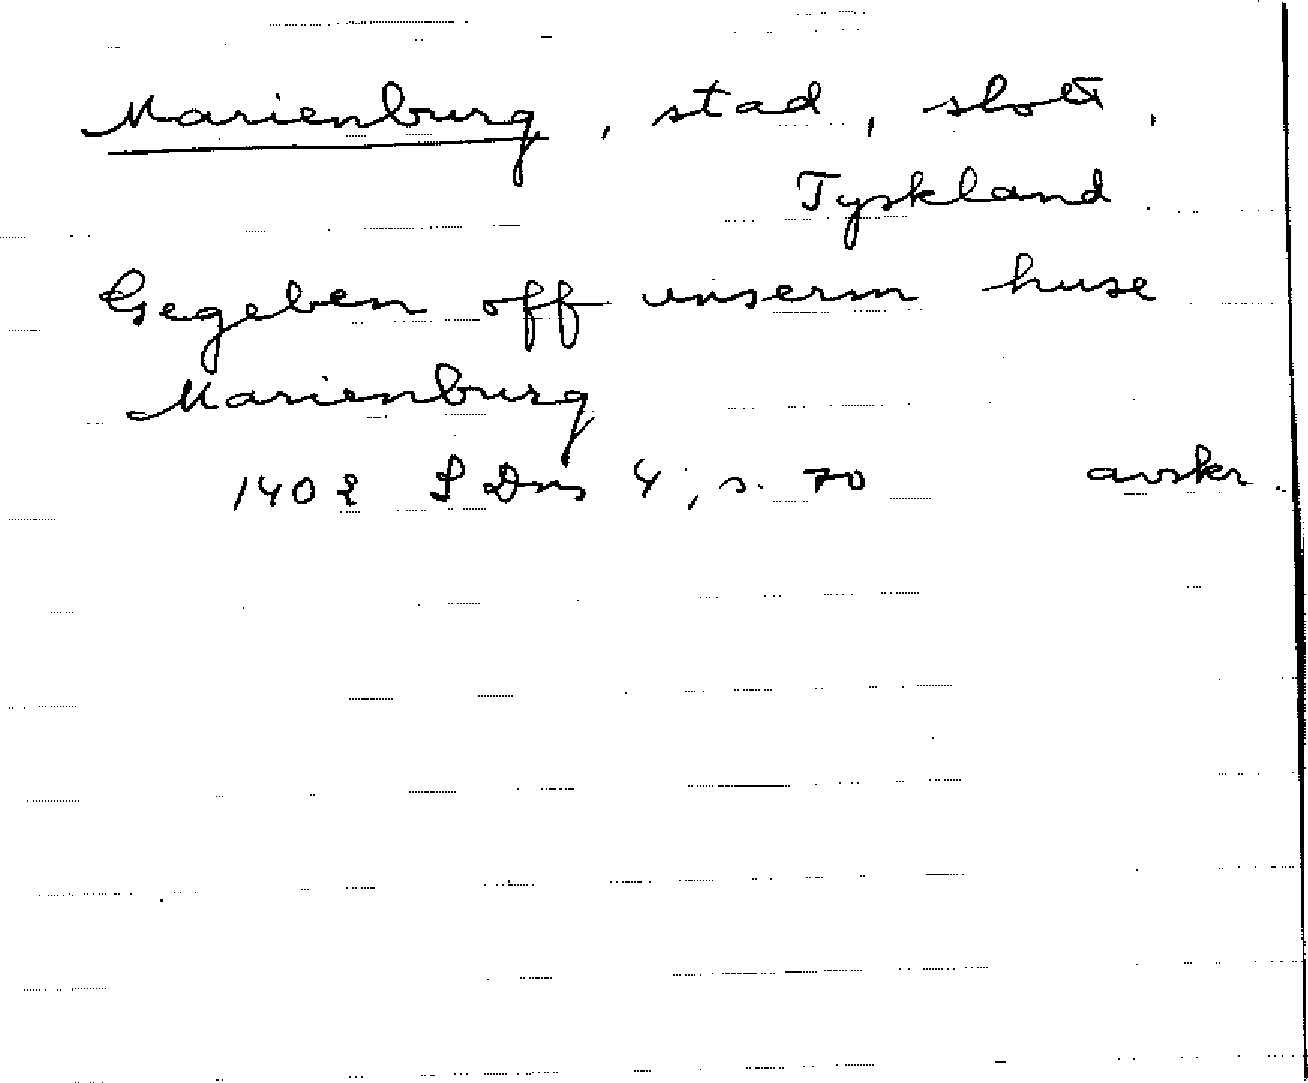 Marienburg, stad, slott,
Tyskland
Gegeben off unserm huse
Marienburg
1402 SDns 4, s. 70 avskr.